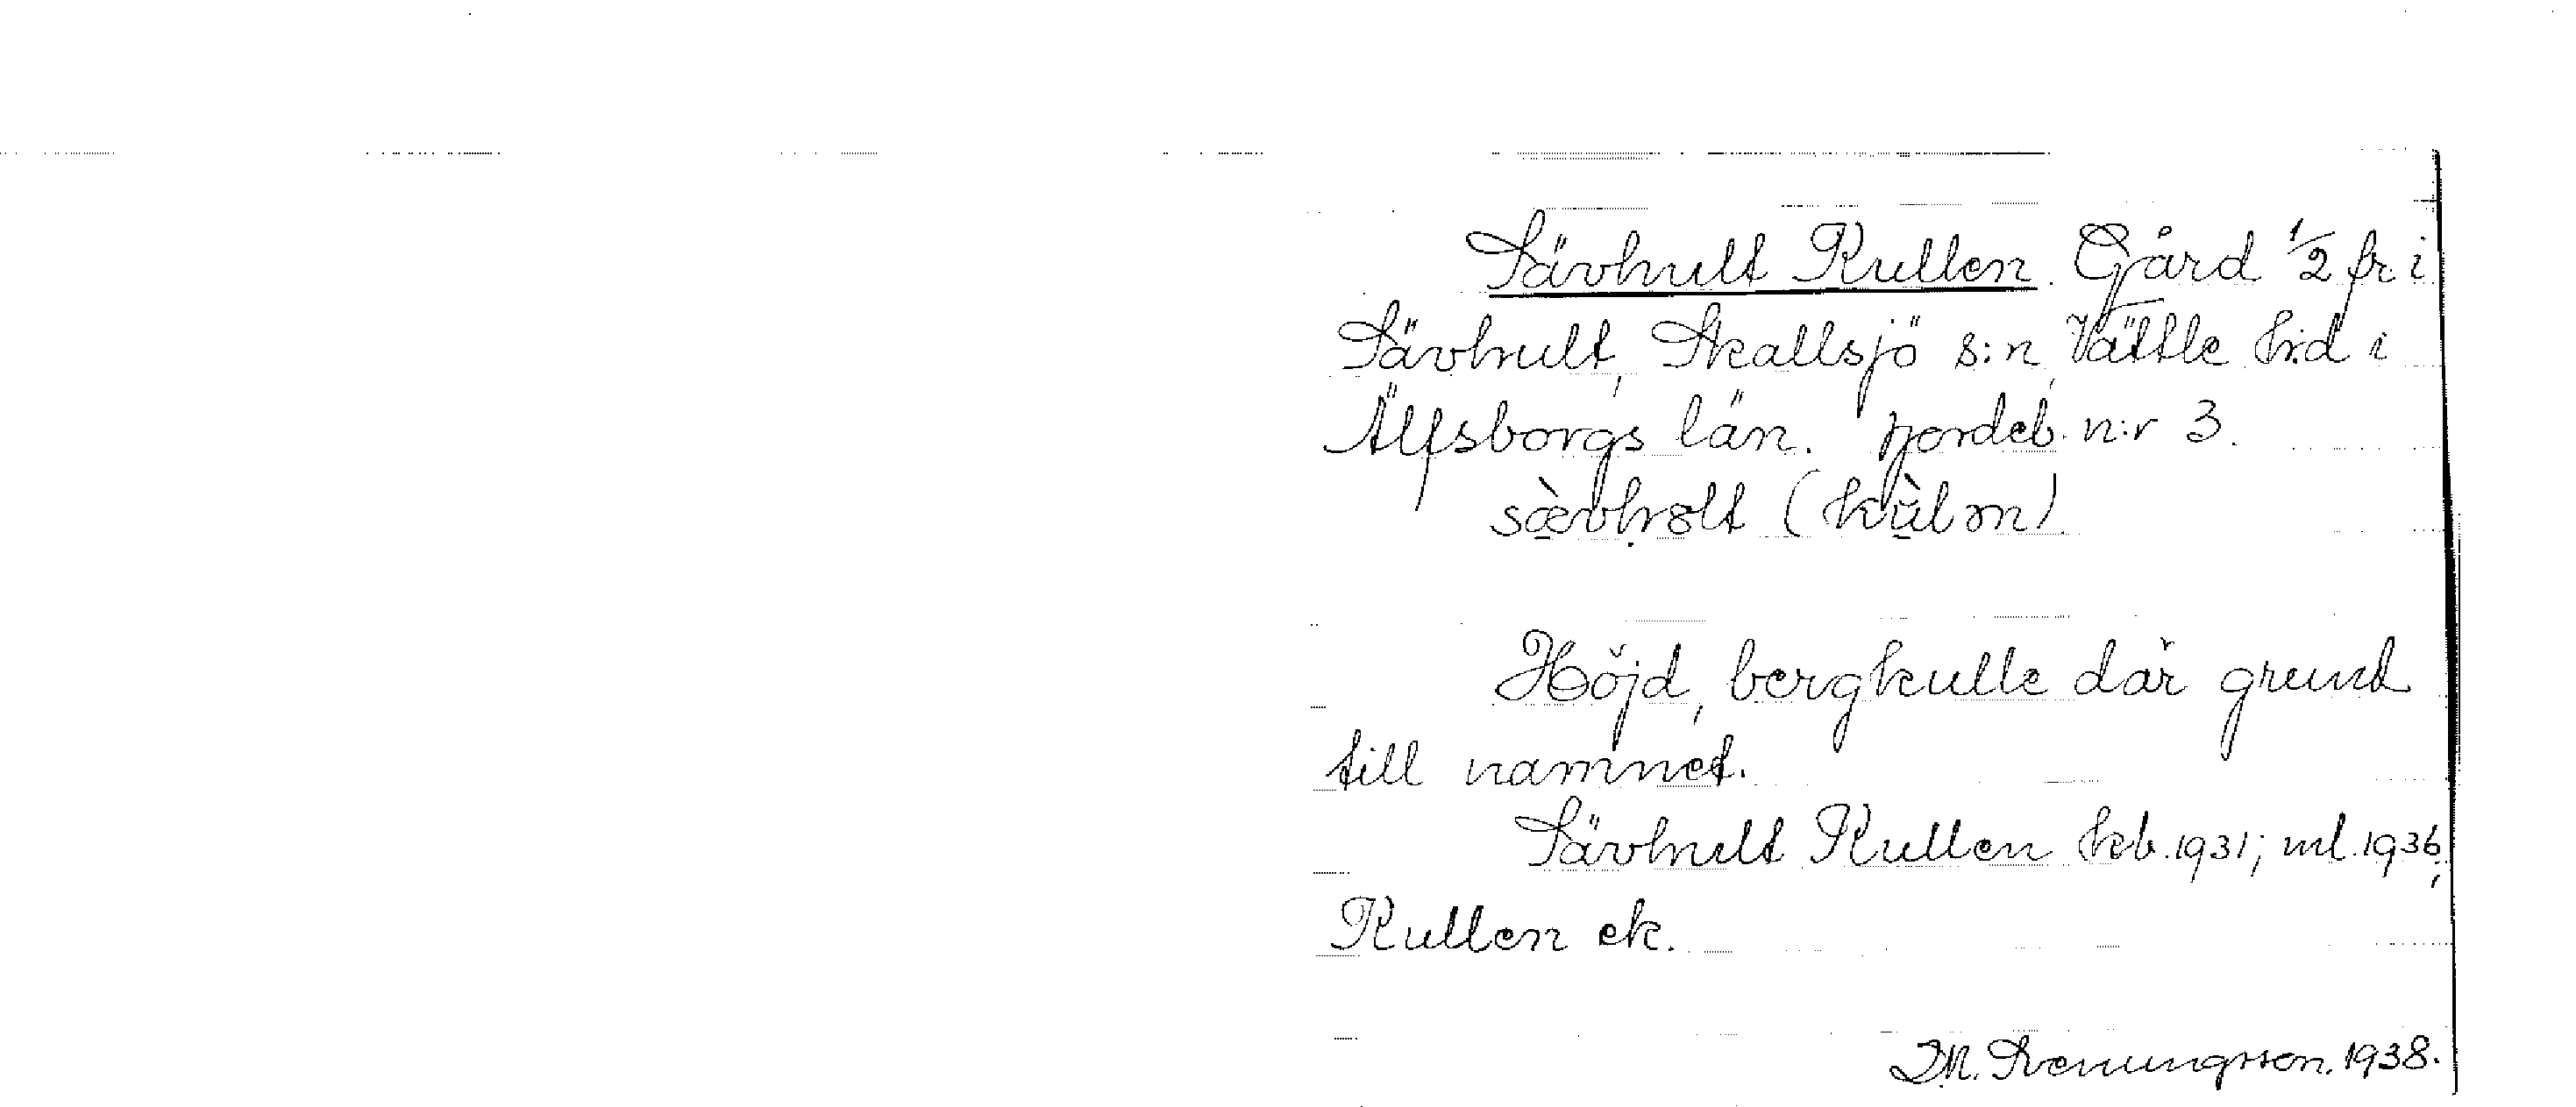 Sävhult Kullen. Gård 1/2 fr. i
Sävhult, Skallsjö s:n, Vättle h:d i
Älfsborgs län. jordeb. n:r 3.
sæ̀vhɷlt (kùlən).
Höjd, bergkulle där grund
till namnet.
Sävhult Kullen kb. 1931; ml. 1936;
Kullen ek.
M. Svenungsson. 1938.